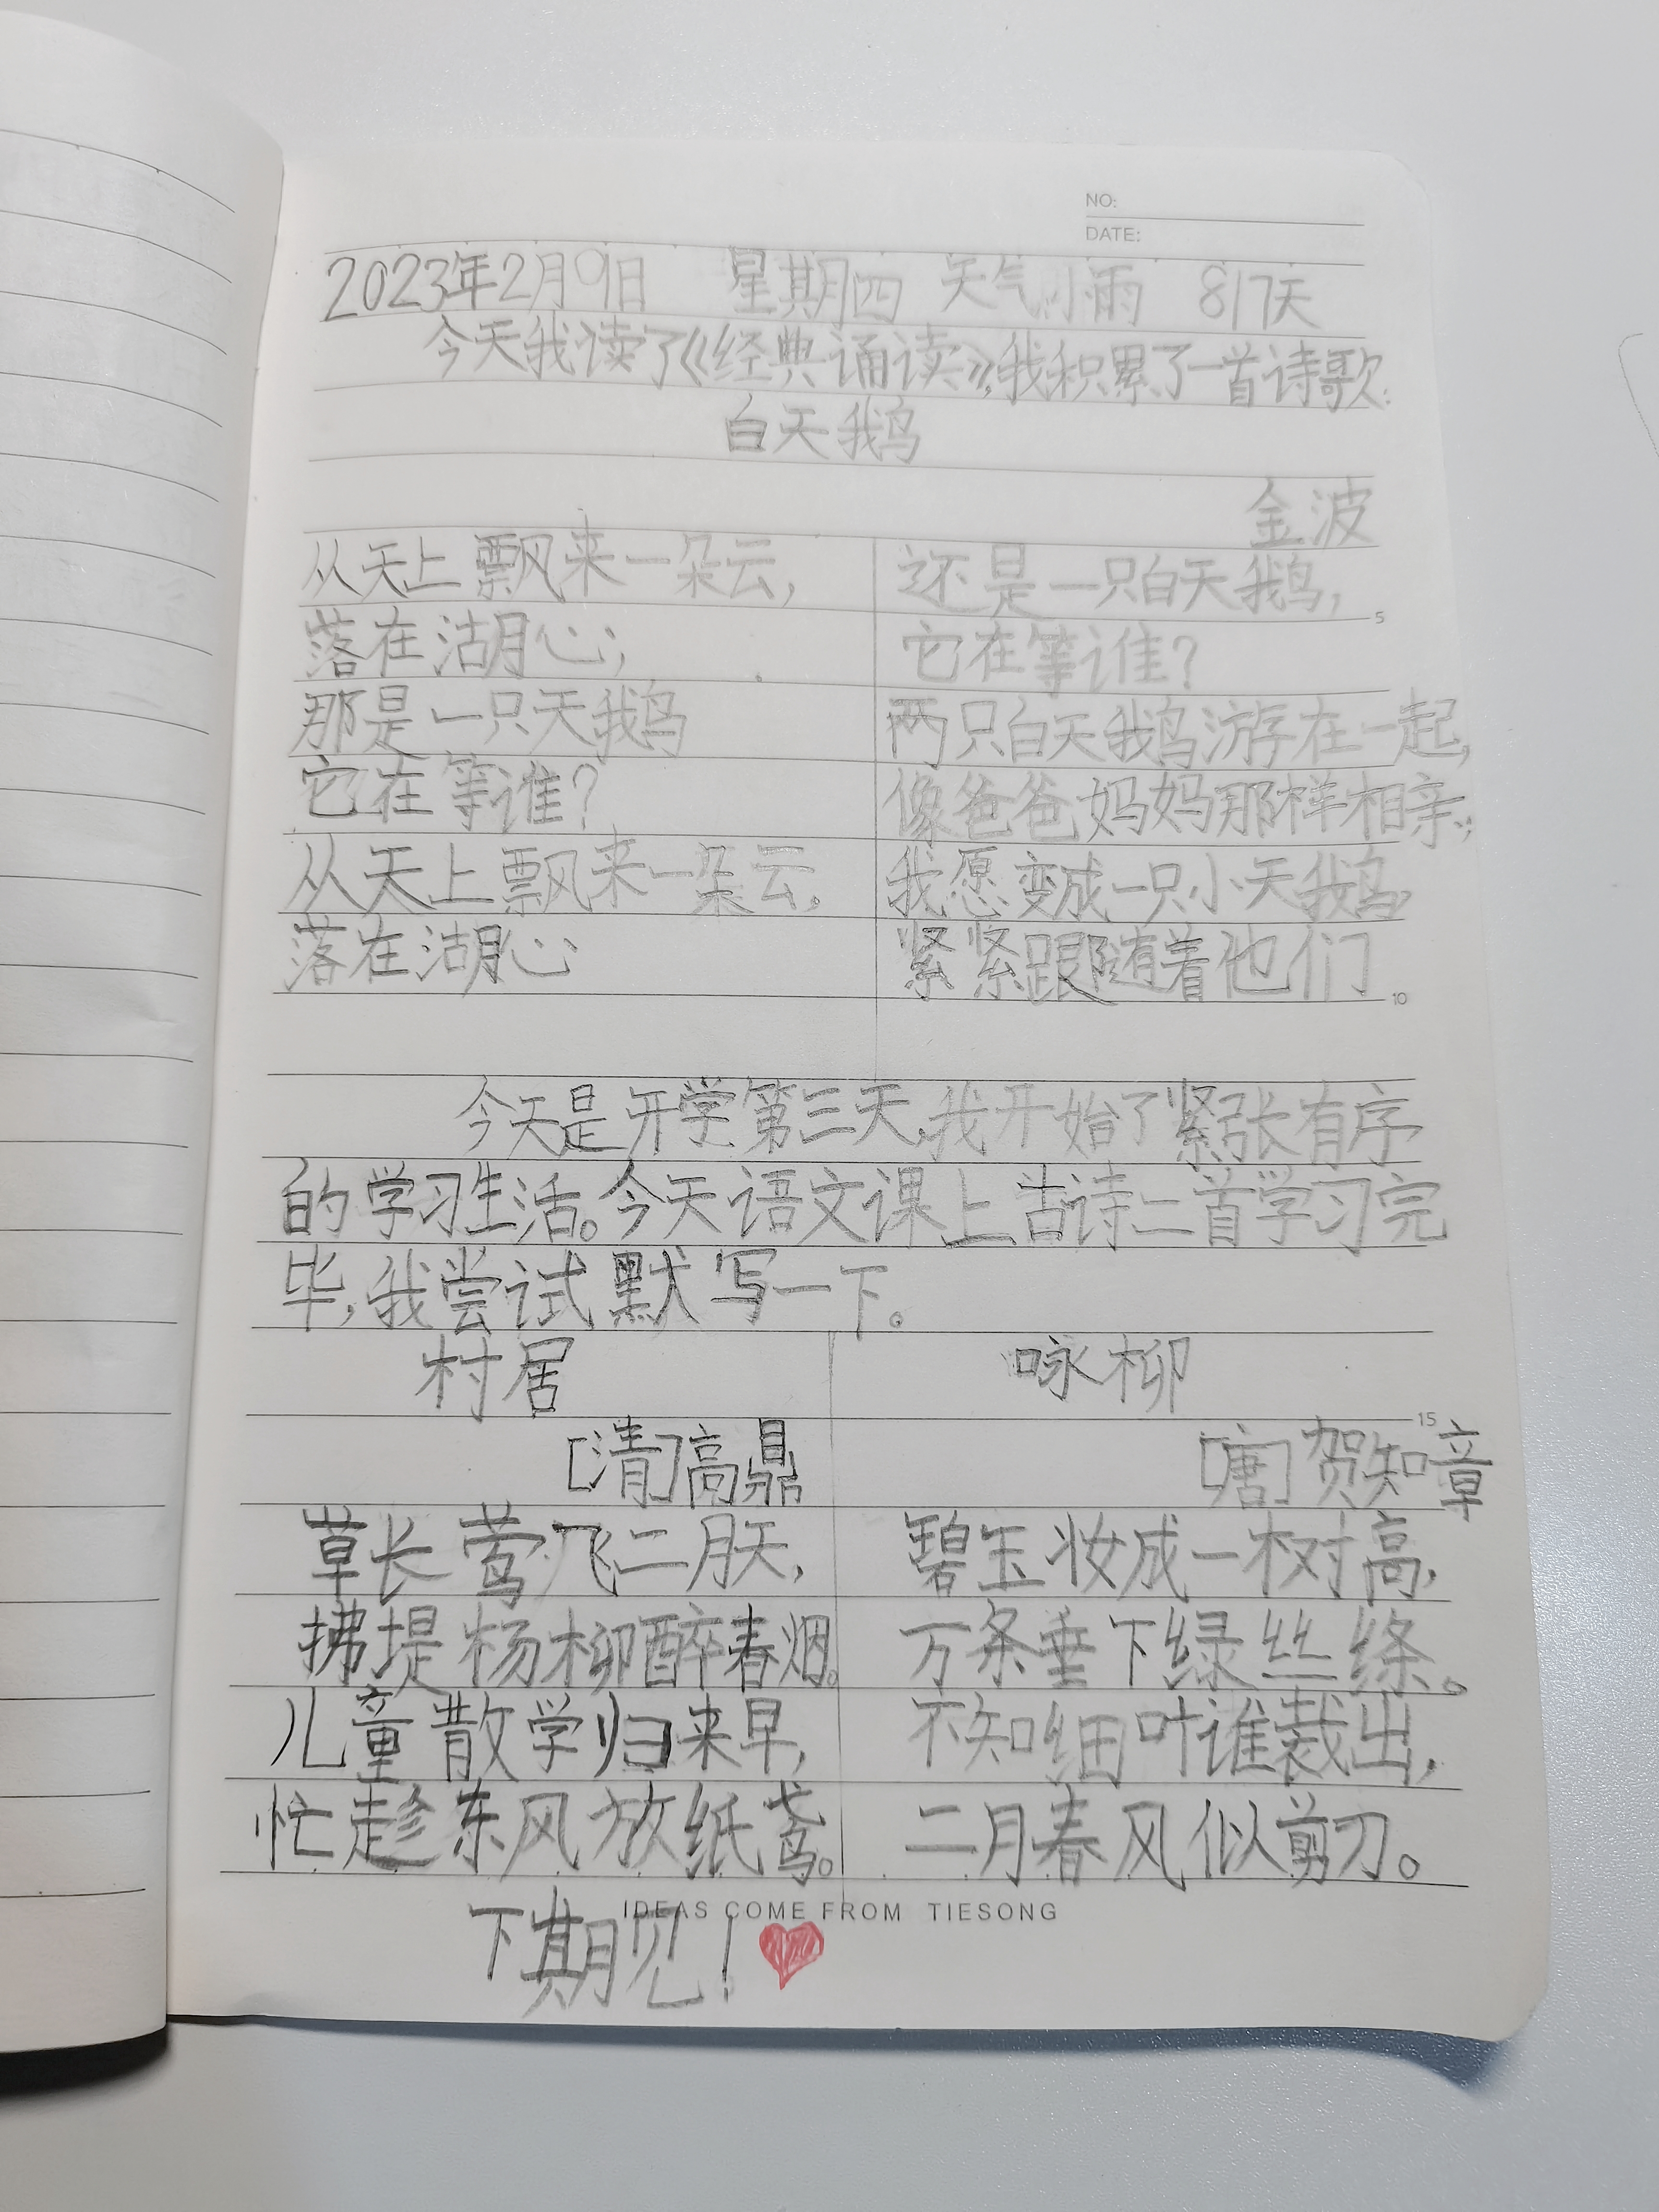 NO:
DATE:
2023年2月9日 星期四 天气小雨 817天
今天我读了《经典诵读》,我积累了一首诗歌:
白天鹅
金波
从天上飘来一朵云,
落在湖心;
那是一只天鹅
它在等谁?
从天上飘来一朵云。
落在湖心
还是一只白天鹅,
它在等谁?
两只白天鹅游在一起,
像爸爸妈妈那样相亲;
我愿变成一只小天鹅,
紧紧跟随着他们
5
10
今天是开学第三天,我开始了紧张有序
的学习生活。今天语文课上古诗二首学习完
毕,我尝试默写一下。
村居
[清]高鼎
草长莺飞二月天,
拂堤杨柳醉春烟。
儿童散学归来早,
忙趁东风放纸鸢。
咏柳
15
[唐]贺知章
碧玉妆成一树高,
万条垂下绿丝绦。
不知细叶谁裁出,
二月春风似剪刀。
IDEAS COME FROM TIESONG
下期见!